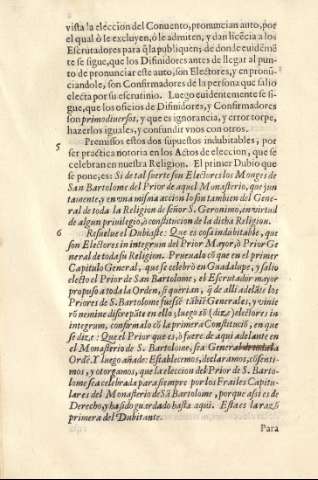 vista la eleccion del Conuento, pronuncian auto, por
el qual ò le excluyen, ò le admiten, y dan licẽcia a los
Escrutadores para q̃ la publiquen; de donde euidẽte
te se sigue, que los Difinidores antes de llegar al pun-
to de pronunciar este auto, son Electores, y en pronũ-
ciandole, son Confirmadores de la persona que salio
electa por su escrutinio. Luego euidentemente se si-
gue, que los oficios de Difinidores, y Confirmadores
son primo diuersos, y que es ignorancia, y error torpe,
hazerlos iguales, y confundir vnos con otros.
5 Premissos estos dos supuestos indubitables, por
ser practica notoria en los Actos de eleccion, que se
celebran en nuestra Religion. El primer Dubio que
se pone, es: Si de tal suerte son Electores los Monges de
San Bartolome del Prior de aquel Monasterio, que jun
tamente, y en vna misma accion lo sun tambien del Gene-
ral de toda la Religion de señor S. Geronimo, en virtud
de algun priuilegio, ò constitucion de la dicha Religion.
6 Resuelue el Dubiaste: Que es cosa indubitable, que
son Electores in integrum del Prior Mayor, ò Prior Ge
neral de toda su Religion. Prueualo cõ que en el primer
Capitulo General, que se celebrò en Guadalupe, y salio
electo el Prior de San Bartolome, el Escrutador mayor
propuso a toda la Orden, si querian, q̃ de alli adelãte los
Priores de S. Bartolome fuessẽ tãbiẽ Generales, y vinie
rõ nemine discrepãte en ello; luego sõ (dize) electores in
integrum, confirmalo cõ la primera Cõstituciõ, en que
se dize: Que el Prior que es, ò fuere de aqui adelante en
el Monasterio de S. Bartolome, sea General de toda la
Ordẽ. Y luego añade: Establecemos, declaramos, cõsenti-
mos, y otorgamos, que la eleccion del Prior de S. Barto-
lome sea celebrada para siempre por los Frailes Capitu-
lares del Monasterio de Sã Bartolome, porque assi es de
Derecho, y ha sido guardado hasta aqui. Esta es la razõ
primera del Dubitante.
Para